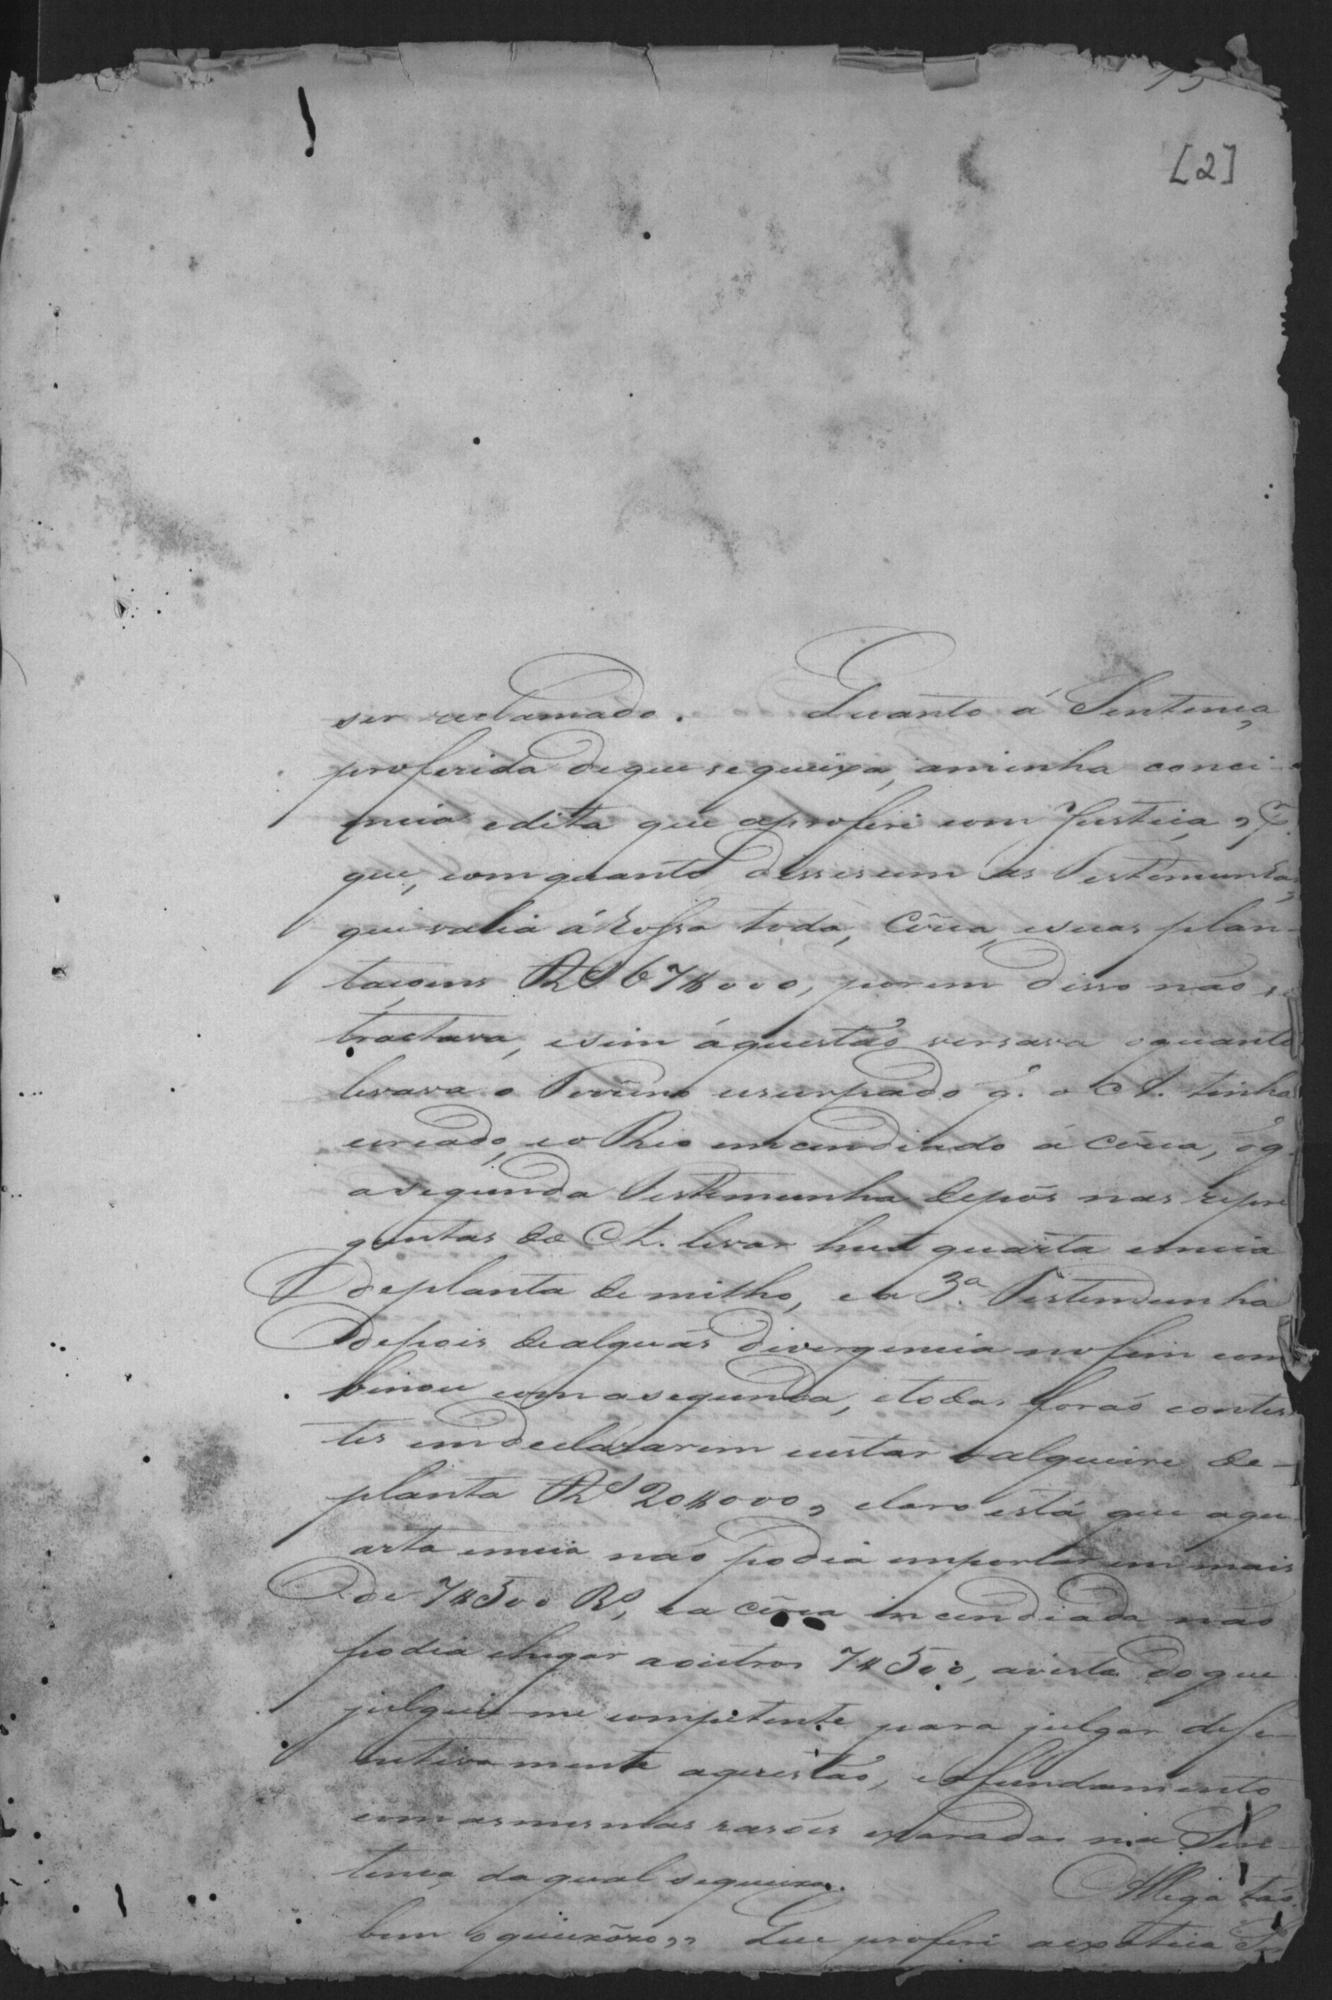 [2]
ser reclamado. Quanto á Sentença
proferida de que se queixa, a minha conci-
encia edita que a proferi com Justiça,
que, com quanto dissessem as Testemunhas
que valia á Rossa toda, Cêrca, e suas plan-
taçoens Rs 67$000, porem disso não se
tractava, e sim á questão versava o quanto
levava o Terreno usurpado q. o A. tinha
cercado, e o Rio incendiado á cêrca, e q.
a segunda Testemunha depôs nas repre
guntas do A. levar huã quarta e meia
de planta de milho, e a 3.ª Testemunha
depois de alguãs divergencia no fim com
binou com a segunda, e todas forão contes
tes em declararem custar o alqueire de-
planta Rs 20$000, claro está que a qu-
arta e meia não podia importar em mais
de 7$500 Rs, e a cêrca incendiada não
podia chegar a outros 7$500, a vista do que
julguei-me competente para julgar defe-
netivamente a questão, e o fundamento
com as mesmas rasões exaradas na Sen-
tença da qual se queixa. Allega tão
bem o queixôzo, Que proferi a expotica